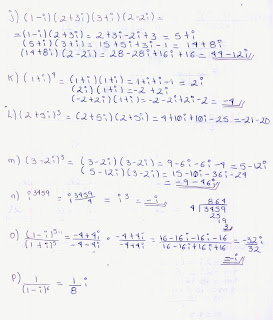 j) (1-i)(2+3i)(3+i)(2-2i)=
=(1-i)(2+3i)= 2+3i-2i+3 = 5+i
(5+i)(3+i)= 15+5i+3i-1 = 14+8i
(14+8i)(2-2i)= 28-28i+16i+16 = 44-12i//
k) (1+i)⁴ = (1+i)(1+i)= 1+i+i-1 = 2i
(2i)(1+i)= -2+2i
(-2+2i)(1+i)= -2-2i+2i-2 = -4//
L) (2+5i)³ = (2+5i)(2+5i)= 4+10i+10i-25 = -21-20
m) (3-2i)³ = (3-2i)(3-2i)= 9-6i-6i-4 = 5-12i
(5-12i)(3-2i)= 15-10i-36i-24
= -9-46i//
n) i³⁴⁵⁹ = i 3459/4 = i³ = -i//
864
4 3459
25
3
o) (1-i)⁵/(1+i)⁵ = -4+4i/-4-4i · -4+4i/-4+4i = 16-16i-16i-16/16-16i+16i+16 = -32i/32
= -i//
p) 1/(1-i)⁶ = 1/8 i